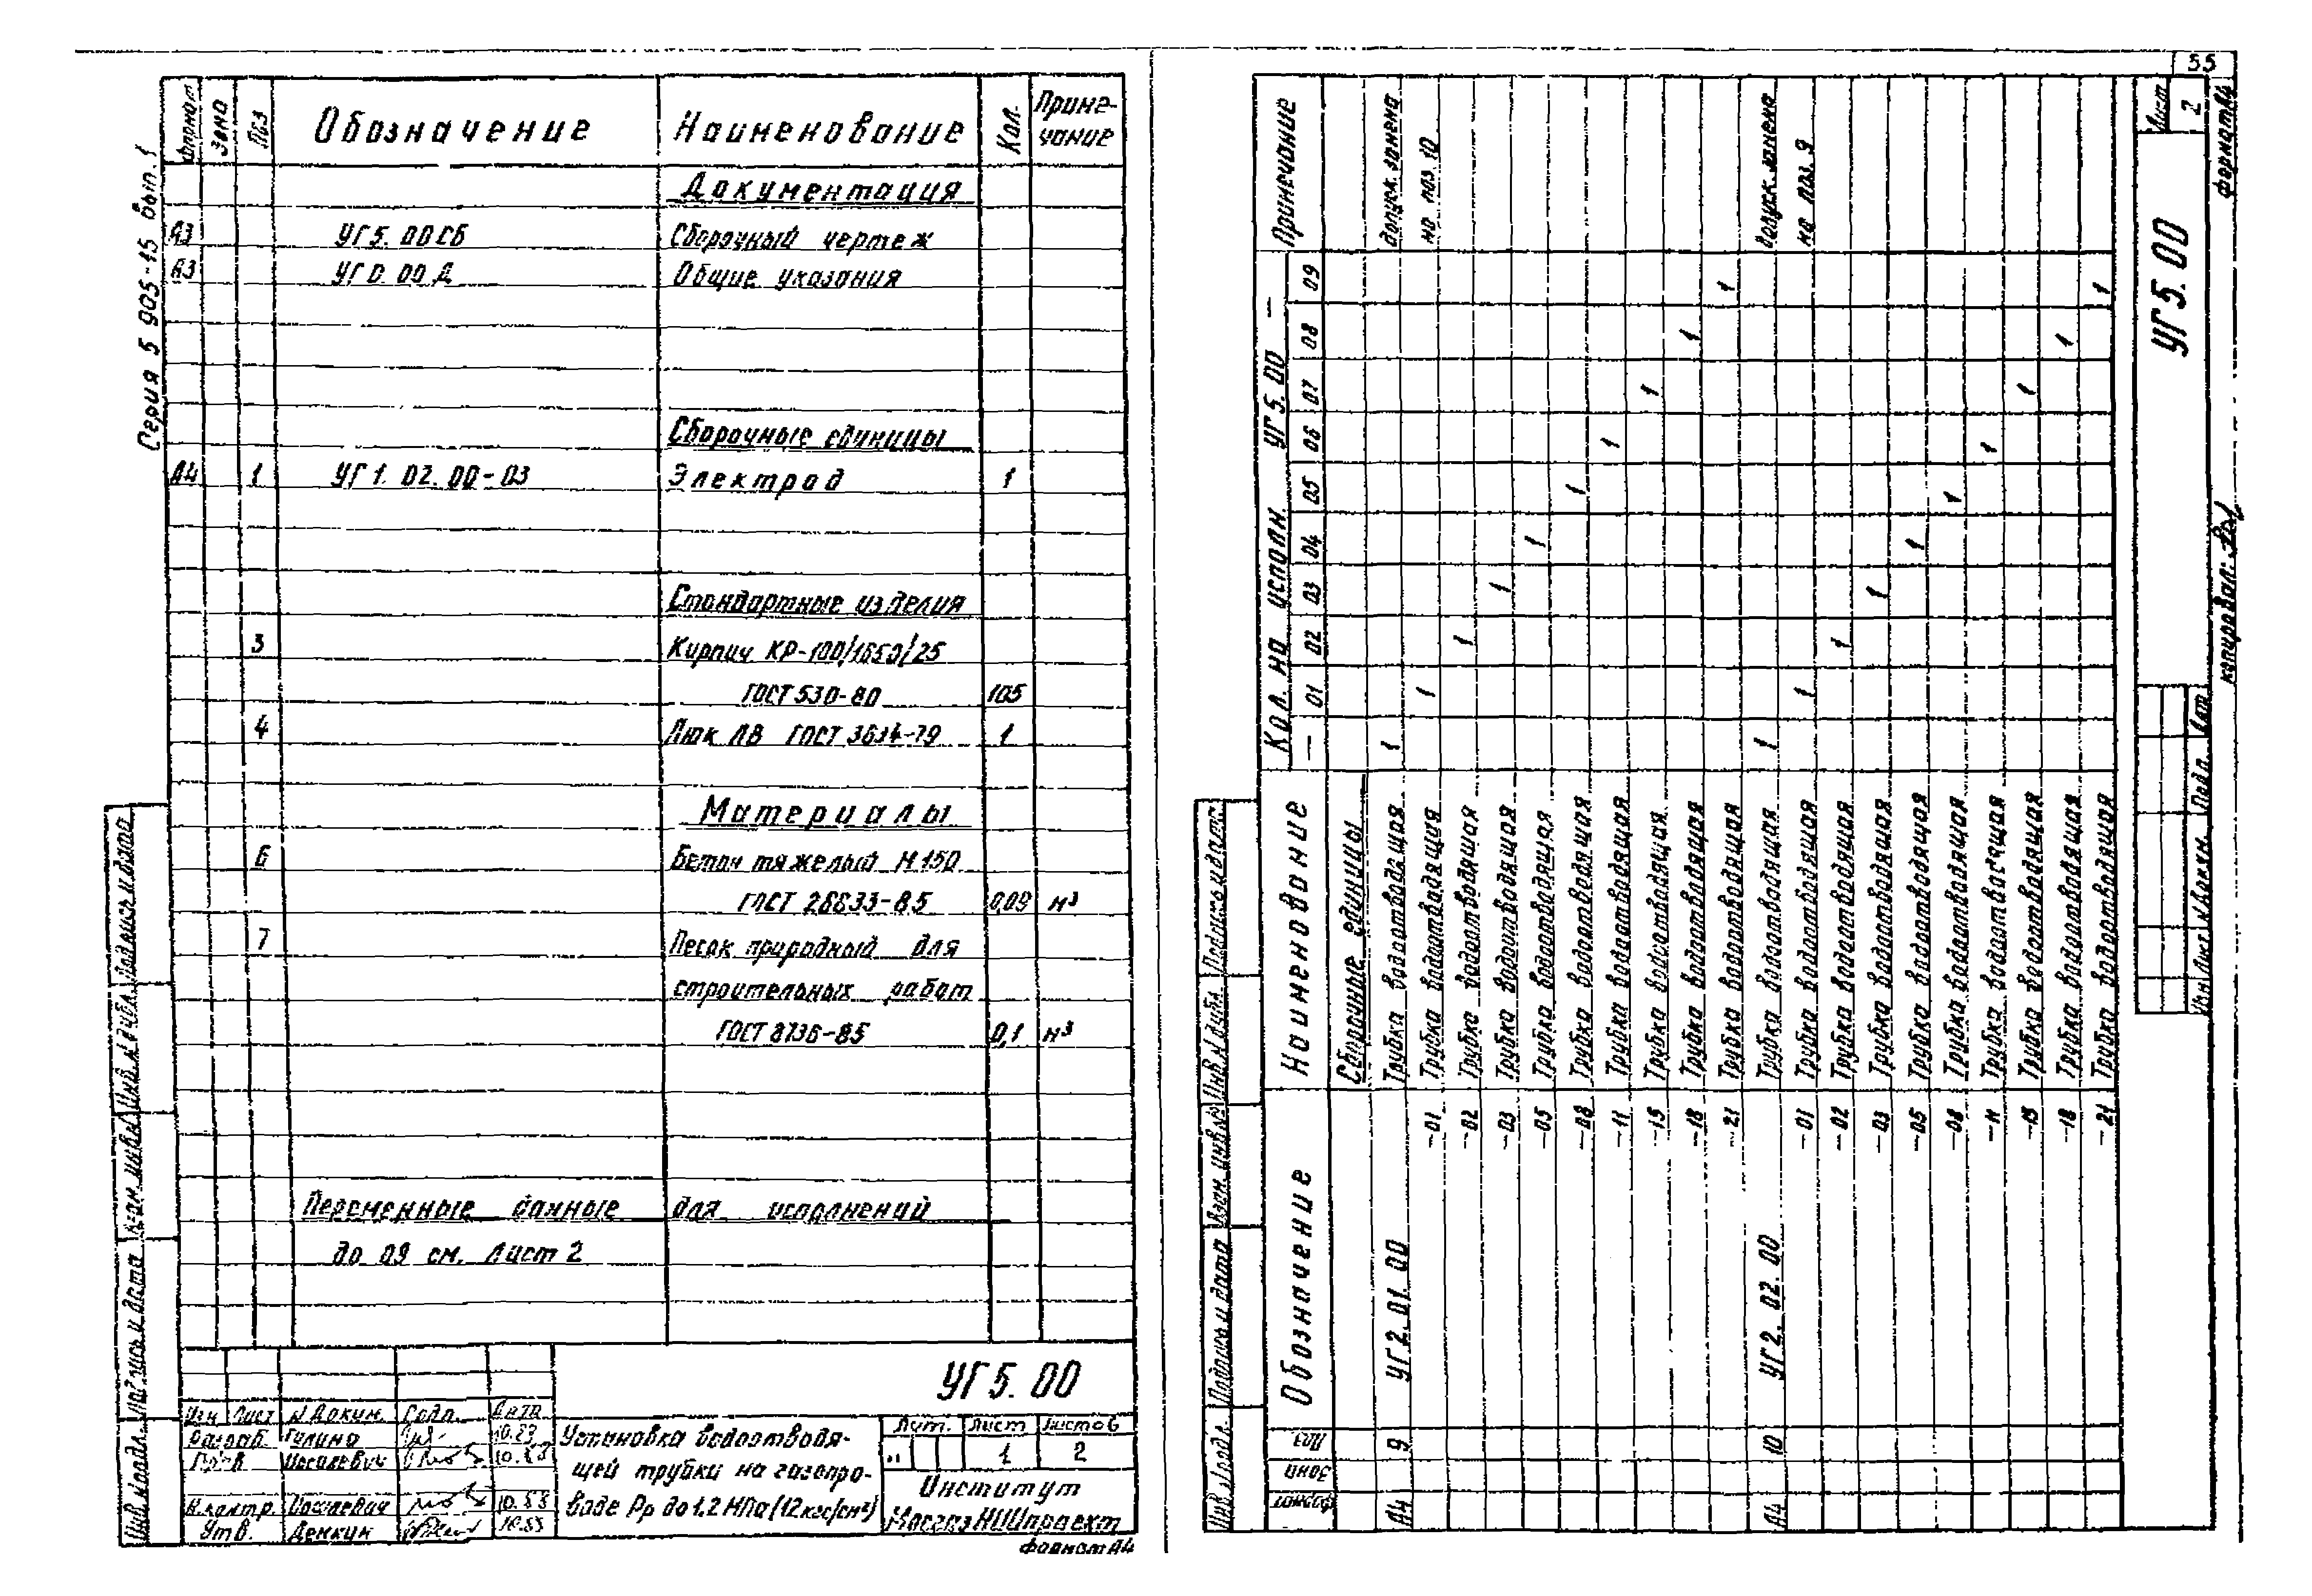 Серия 5 905-15 Вып.1
Формат Зона Поз Обозначение Наименование Кол. Примечание
Документация
А3 УГ5.00СБ Сборочный чертеж
А3 УГ0.00Д Общие указания
Сборочные единицы
А4 1 УГ1.02.00-03 Электрод 1
Стандартные изделия
3 Кирпич КР-100/1650/25
ГОСТ 530-80 105
4 Люк ЛВ ГОСТ 3634-79 1
Материалы
6 Бетон тяжелый М150
ГОСТ 26633-85 0,09 м³
7 Песок природный для
строительных работ
ГОСТ 8736-85 0,1 м³
Переменные данные для исполнений
до 09 см. Лист 2
Инв.N подл. Подпись и дата Взам.инв.N Инв.N дубл. Подпись и дата
УГ5.00
Изм Лист N Докум. Подп. Дата
Разраб. Голина
Пров.
Н.контр.
Утв. Демкин
Установка водоотводя-
щей трубки на газопро-
воде Рр до 1,2 МПа (12кгс/см²)
Лит. Лист Листов
1 2
Институт
МосгазНИИпроект
Формат А4
55
Формат Зона Поз. Обозначение Наименование Кол. на исполн. УГ5.00 — Примечание
— 01 02 03 04 05 06 07 08 09
Сборочные единицы
А4 9 УГ2.01.00 Трубка водоотводящая 1 допуск. замена
-01 Трубка водоотводящая 1 на поз 10
-02 Трубка водоотводящая 1
-03 Трубка водоотводящая 1
-05 Трубка водоотводящая 1
-08 Трубка водоотводящая 1
-11 Трубка водоотводящая 1
-15 Трубка водоотводящая 1
-18 Трубка водоотводящая 1
-21 Трубка водоотводящая 1
А4 10 УГ2.02.00 Трубка водоотводящая 1 допуск. замена
-01 Трубка водоотводящая 1 на поз. 9
-02 Трубка водоотводящая 1
-03 Трубка водоотводящая 1
-05 Трубка водоотводящая 1
-08 Трубка водоотводящая 1
-11 Трубка водоотводящая 1
-15 Трубка водоотводящая 1
-18 Трубка водоотводящая 1
-21 Трубка водоотводящая 1
Инв.N подл. Подпись и дата Взам.инв.N Инв.N дубл. Подпись и дата
Изм Лист N Докум. Подп. Дат
УГ5.00
Лист
2
копировал:
формат А4